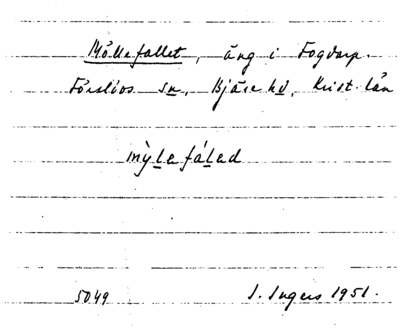 Möllefallet, äng i Fogdarp.
Förslövs sn, Bjäre hd, Krist. län
mỳlefálad
5049 I. Ingers 1951.